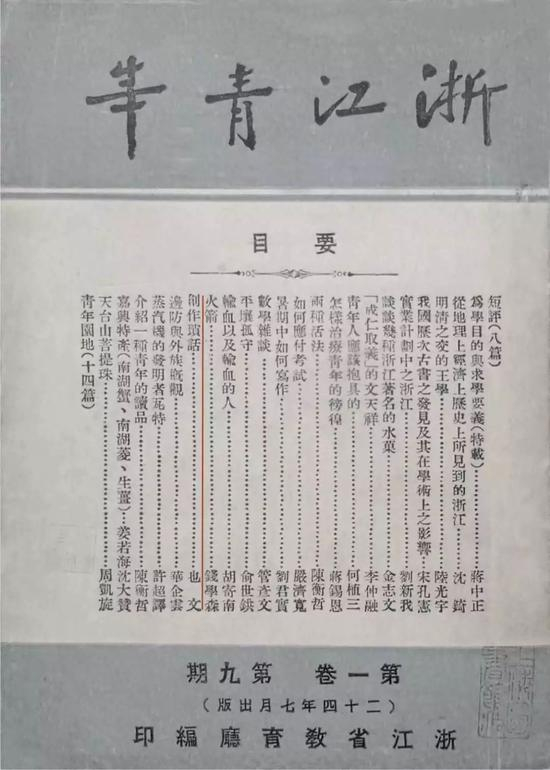 浙江青年
要目
短評(八篇)
為學目的與求學要義(特載)……蔣中正
從地理上經濟上歷史上所見到的浙江……沈錡
明清之交的王學……陸光宇
我國歷次古書之發見及其在學術上之影響……宋孔憲
實業計劃中之浙江……劉新我
談談幾種浙江著名的水菓……金志文
「成仁取義」的文天祥……李仲融
青年人應該抱具的……何植三
怎樣治療青年的徬徨……蔣錫恩
兩種活法……陳衡哲
如何應付考試……嚴濟寬
暑期中如何寫作……劉君實
數學雜談……管彥文
平壤孤守……俞世鋏
輸血以及輸血的人……胡寄南
火箭……錢學森
創作瑣話……也文
邊防與外族概觀……華企雲
蒸汽機的發明者瓦特……許超譯
介紹一種青年的讀品……陳衡哲
嘉興特產(南湖蟹、南湖菱、生薑)…姜若海
天台山菩提珠……沈大贊
青年園地(十四篇)……周凱旋
第一卷 第九期
(二十四年七月出版)
浙江省教育廳編印